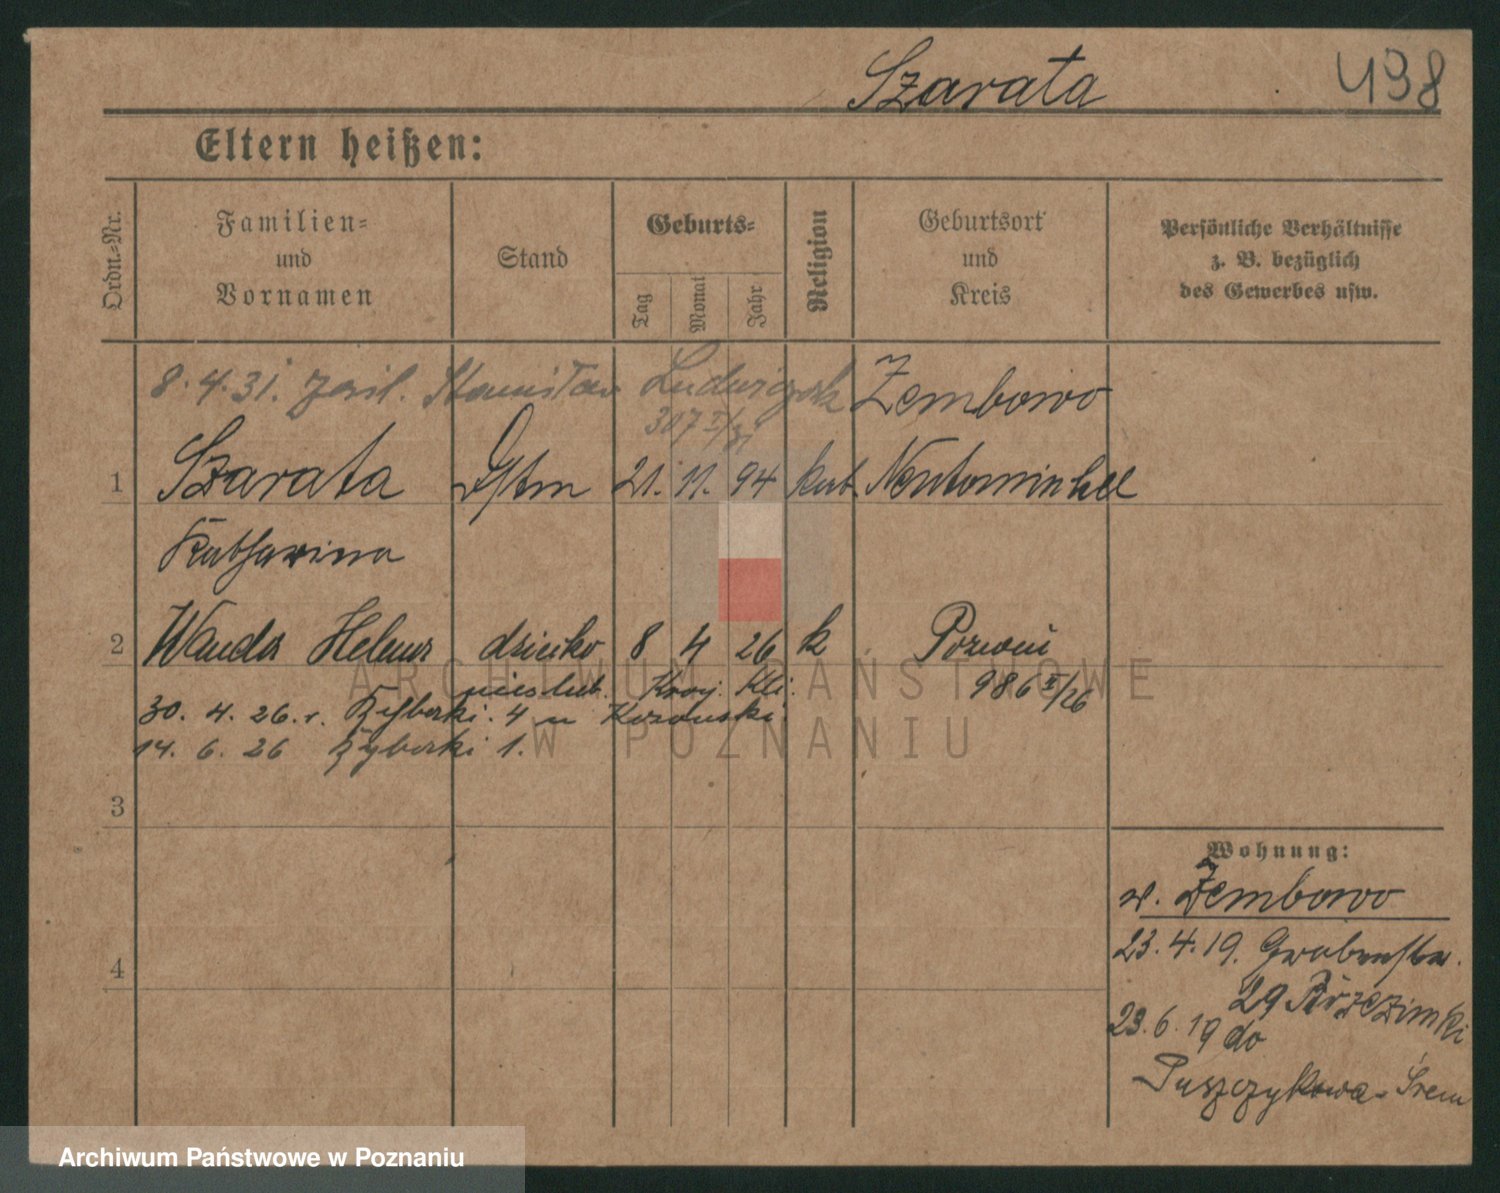 Szarata 498
Eltern heißen:
Ordn.-Nr.
Familien- und Vornamen
Stand
Geburts-
Tag
Monat
Jahr
Religion
Geburtsort und Kreis
Persönliche Verhältnisse z. B. bezüglich des Gewerbes usw.
8.4.31. Stanisław Ludwiczak Zembowo
307 I/31
1 Szarata 21. 11. 94 kat. Neutomischel
Katharina
2 Wanda Helena dziecko 8 4 26 k Poznań
nieślub. 986 II/26
30. 4. 26. r. 4 u
14. 6. 26 1.
3
4
Wohnung:
v. Zembowo
23.4.19. Grabenstr.
29 Brzezinski
23.6.19 do
Puszczykowa-Śrem
ARCHIWUM PAŃSTWOWE
W POZNANIU
Archiwum Państwowe w Poznaniu